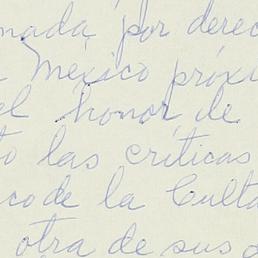 mada por derec
México próxi
el honor de
to las críticas
co de la Culta
otra de sus